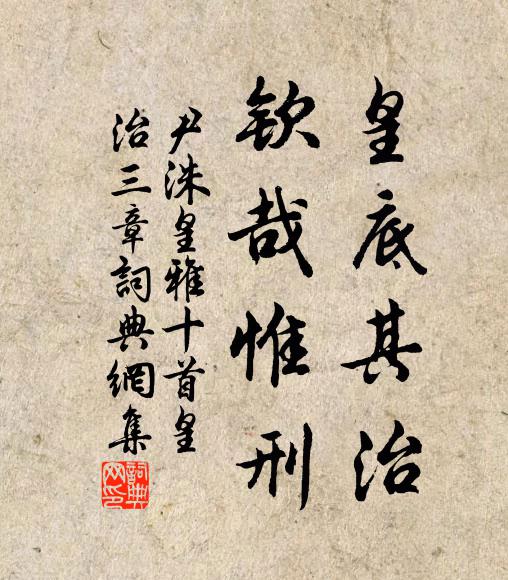 皇底其治
欽哉惟刑
尹洙皇雅十首皇
治三章詞典網集
詞典网印